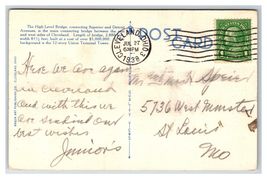 The High Level Bridge, connecting Superior and Detroit
Avenues, is the main connecting bridge between the
east and west sides of Cleveland. Length of bridge,
width 81½ feet, built at a cost of over $5,000,000.
background is the 52-story Union Terminal Tower.
POST CARD
CLEVELAND, OHIO
JUL 27
6 PM
1938
Here we are again
in Cleveland
and with it we are
sending our
best wishes
Junior's
Mr. Spies
5736 Westminster
St Louis
Mo